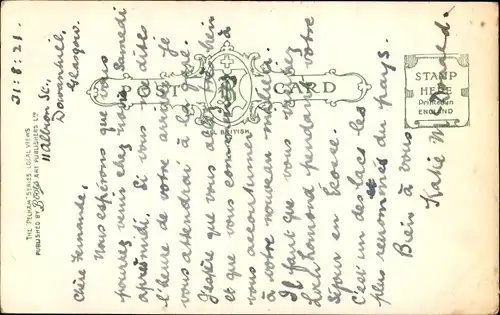 11 Albion St.,
Dowanhill,
Glasgow.
31:8:21.
Chère Fernande,
Nous espérons que vous
pourrez venir chez nous Samedi
après midi. Si vous me dites
l'heure de votre arrivée, je
vous attendrai à la gare.
J'espère que vous allez très bien
et que vous commencez à
vous accoutumer
à votre nouveau milieu.
Il faut que vous voyiez
Loch Lomond pendant votre
séjour en Écosse.
C'est un des lacs les
plus renommés du pays.
Bien à vous
Katie
POST CARD
ALL BRITISH.
STAMP
HERE
Printed in
ENGLAND
THE "PELHAM" SERIES, LOCAL VIEWS
PUBLISHED BY Boots ART PUBLISHERS LTD